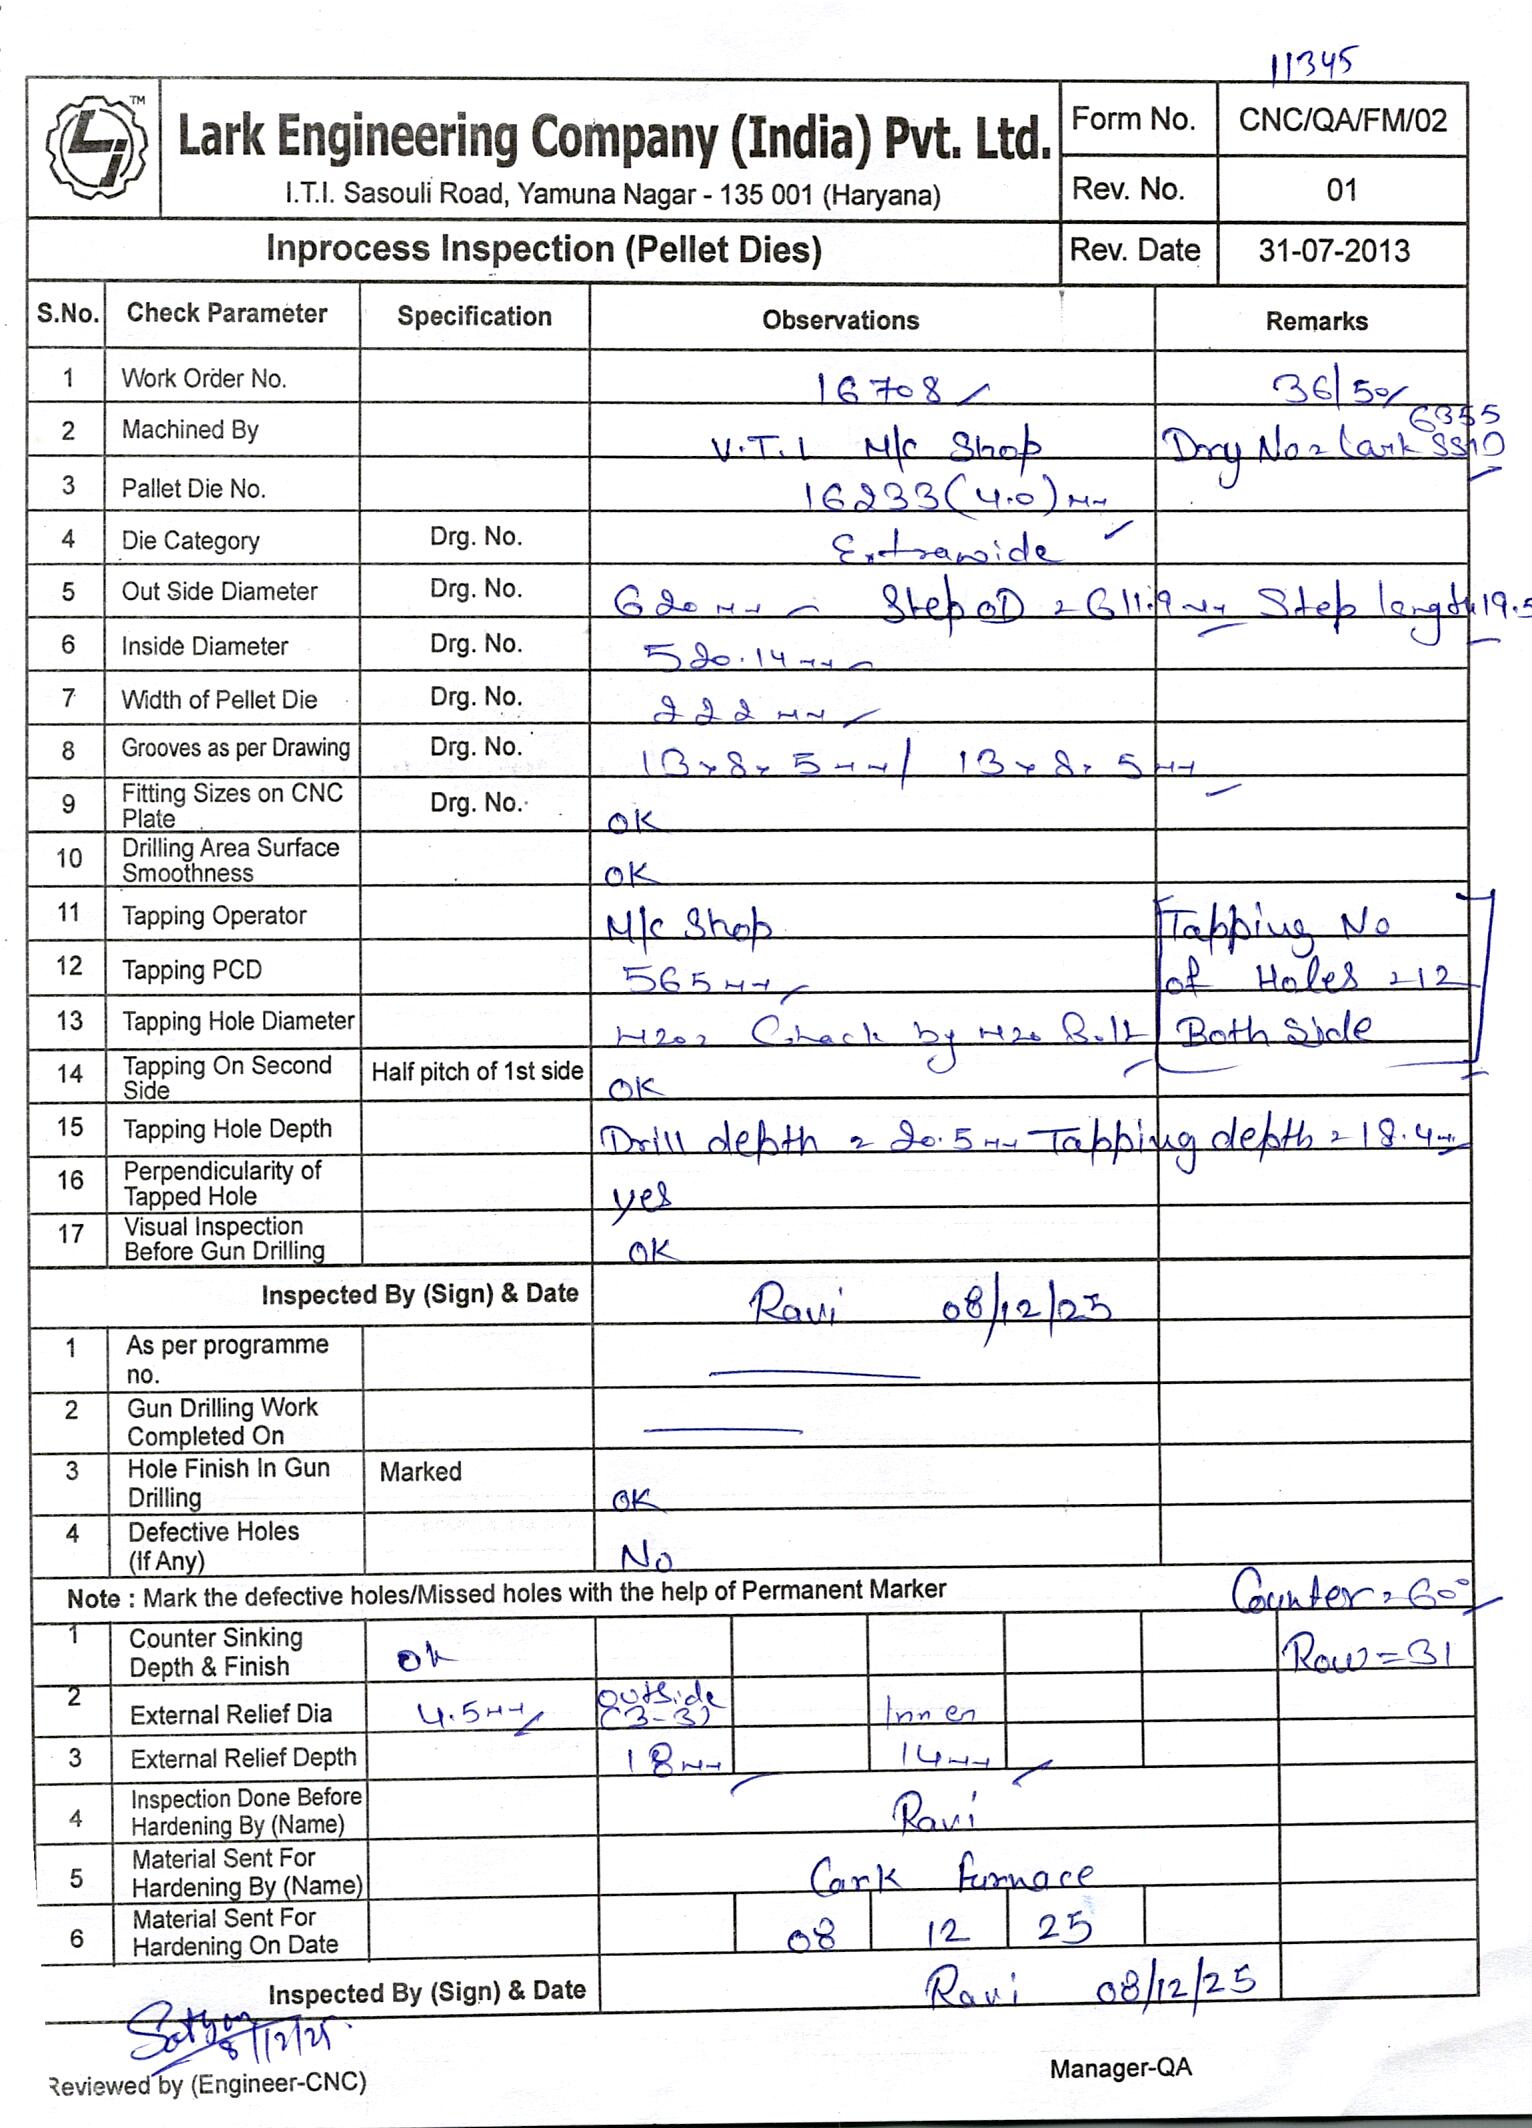 11345
TM
Lark Engineering Company (India) Pvt. Ltd.
I.T.I. Sasouli Road, Yamuna Nagar - 135 001 (Haryana)
Form No. CNC/QA/FM/02
Rev. No. 01
Inprocess Inspection (Pellet Dies) Rev. Date 31-07-2013
S.No. Check Parameter Specification Observations Remarks
1 Work Order No. 16708 36/50
2 Machined By V.T.I M/c Shop Drg No = Lark SS10
6355
3 Pallet Die No. 16233 (4.0) mm
4 Die Category Drg. No. Extrawide
5 Out Side Diameter Drg. No. 620 mm Step OD = 611.9 mm Step length 19.5
6 Inside Diameter Drg. No. 520.14 mm
7 Width of Pellet Die Drg. No. 222 mm
8 Grooves as per Drawing Drg. No. 13 x 8 x 5 mm / 13 x 8 x 5 mm
9 Fitting Sizes on CNC Plate Drg. No. OK
10 Drilling Area Surface Smoothness OK
11 Tapping Operator M/c Shop Tapping No
12 Tapping PCD 565 mm of Holes = 12
13 Tapping Hole Diameter M20 = Check by M20 Bolt Both Side
14 Tapping On Second Side Half pitch of 1st side OK
15 Tapping Hole Depth Drill depth = 20.5 mm Tapping depth = 18.4 mm
16 Perpendicularity of Tapped Hole yes
17 Visual Inspection Before Gun Drilling OK
Inspected By (Sign) & Date Ravi 08/12/25
1 As per programme no.
2 Gun Drilling Work Completed On
3 Hole Finish In Gun Drilling Marked OK
4 Defective Holes (If Any) No
Note : Mark the defective holes/Missed holes with the help of Permanent Marker Counter = 60°
1 Counter Sinking Depth & Finish Ok Row = 31
2 External Relief Dia 4.5 mm outside (3-3) Inner
3 External Relief Depth 18 mm 14 mm
4 Inspection Done Before Hardening By (Name) Ravi
5 Material Sent For Hardening By (Name) Lark furnace
6 Material Sent For Hardening On Date 08 12 25
Inspected By (Sign) & Date Ravi 08/12/25
8/12/25
Reviewed by (Engineer-CNC) Manager-QA